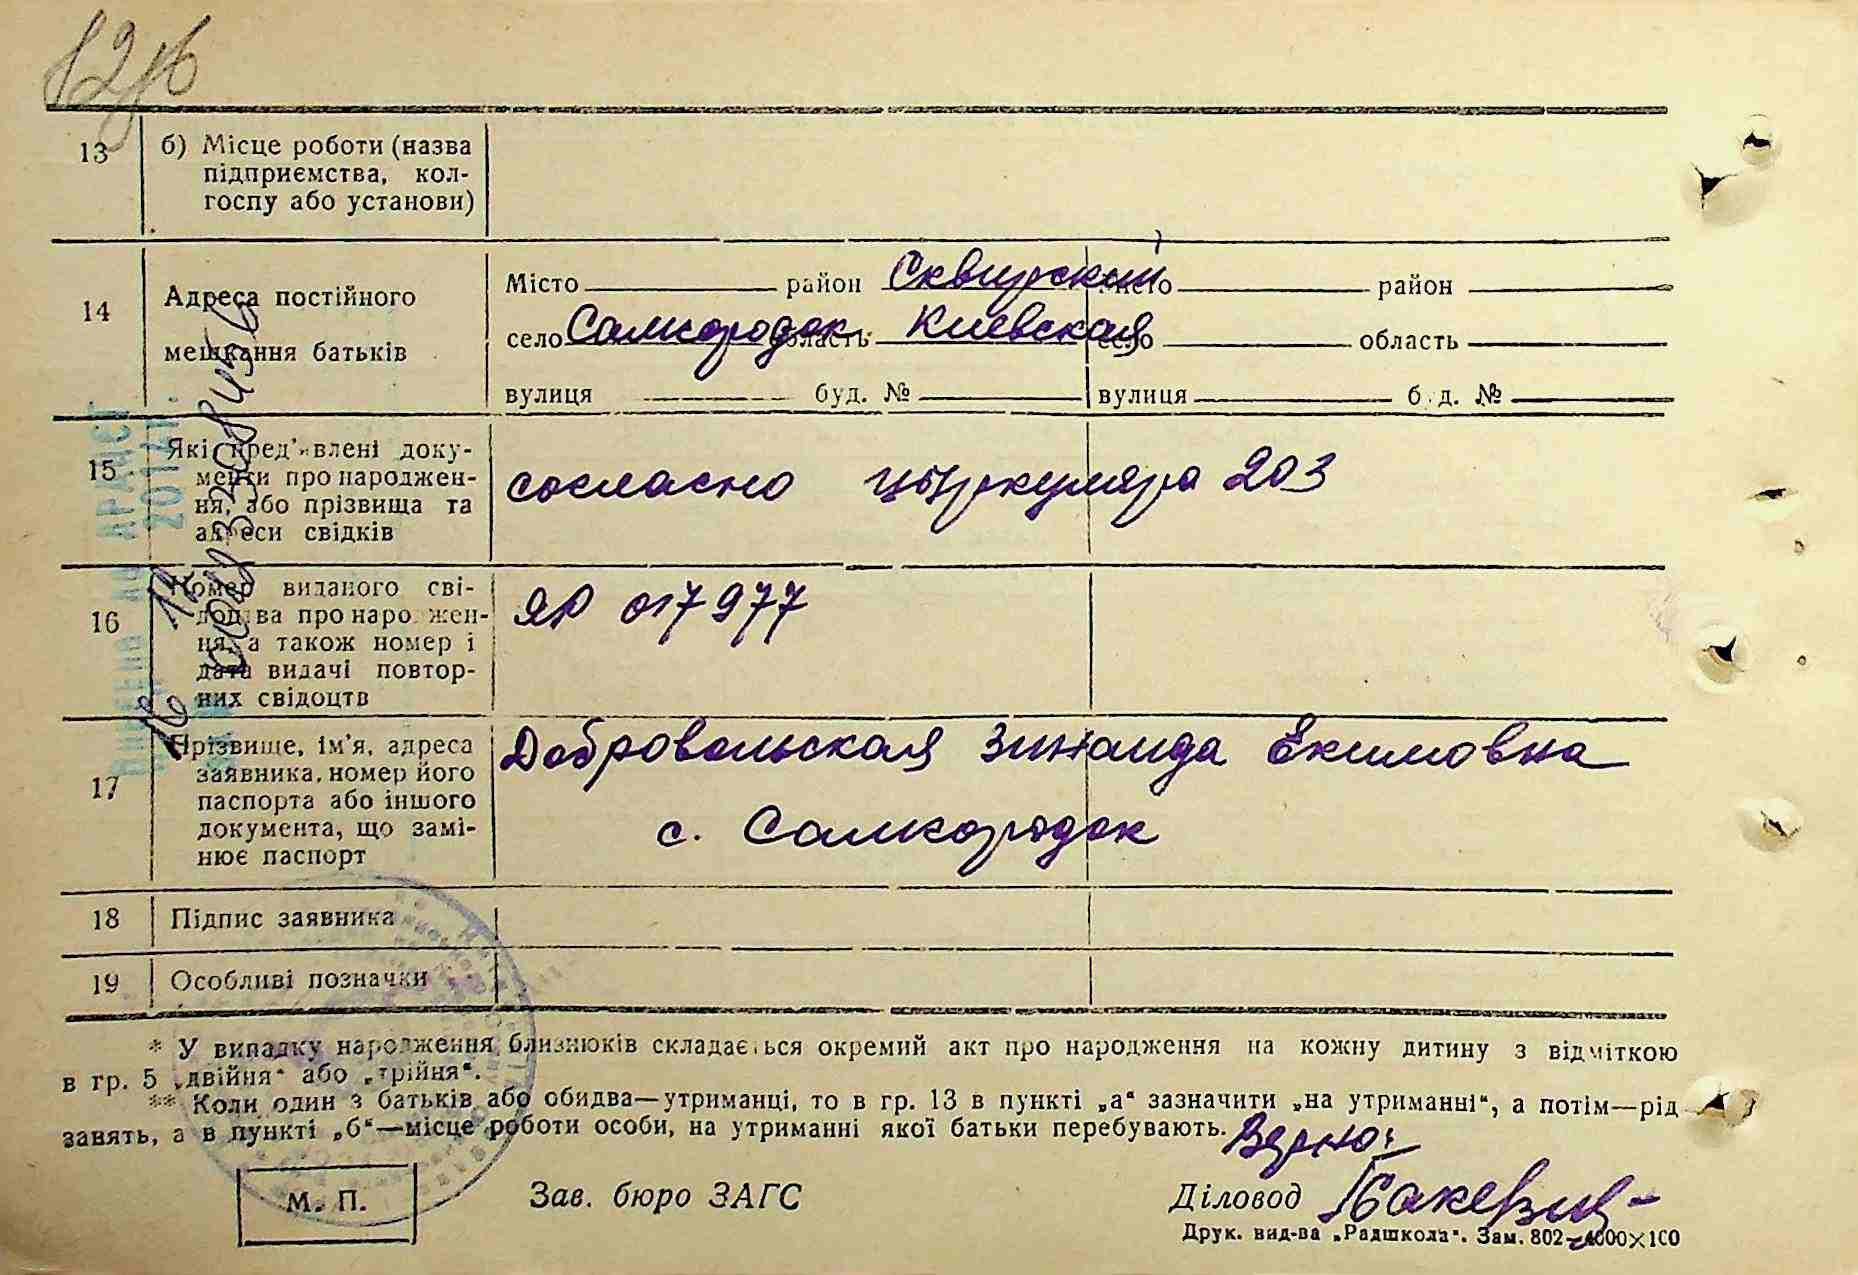 1216
13 б) Місце роботи (назва
підприємства, кол-
госпу або установи)
14 Адреса постійного
мешкання батьків
Місто район Сквирский місто район
село Самгородок область Киевская село область
вулиця буд. № вулиця буд. №
15 Які пред'явлені доку-
менти про народжен-
ня, або прізвища та
адреси свідків
согласно циркуляра 203
16 Номер виданого сві-
доцтва про народжен-
ня, а також номер і
дата видачі повтор-
них свідоцтв
ЯР 017977
17 Прізвище, ім'я, адреса
заявника, номер його
паспорта або іншого
документа, що замі-
нює паспорт
Добровольская Зинаида Екимовна
с. Самгородок
18 Підпис заявника
19 Особливі позначки
* У випадку народження близнюків складається окремий акт про народження на кожну дитину з відміткою
в гр. 5 „двійня“ або „трійня“.
** Коли один з батьків або обидва—утриманці, то в гр. 13 в пункті „а“ зазначити „на утриманні“, а потім—рід
занять, а в пункті „б“—місце роботи особи, на утриманні якої батьки перебувають.
Верно:
М. П. Зав. бюро ЗАГС Діловод
Друк. вид-ва „Радшкола“. Зам. 802—4000×100